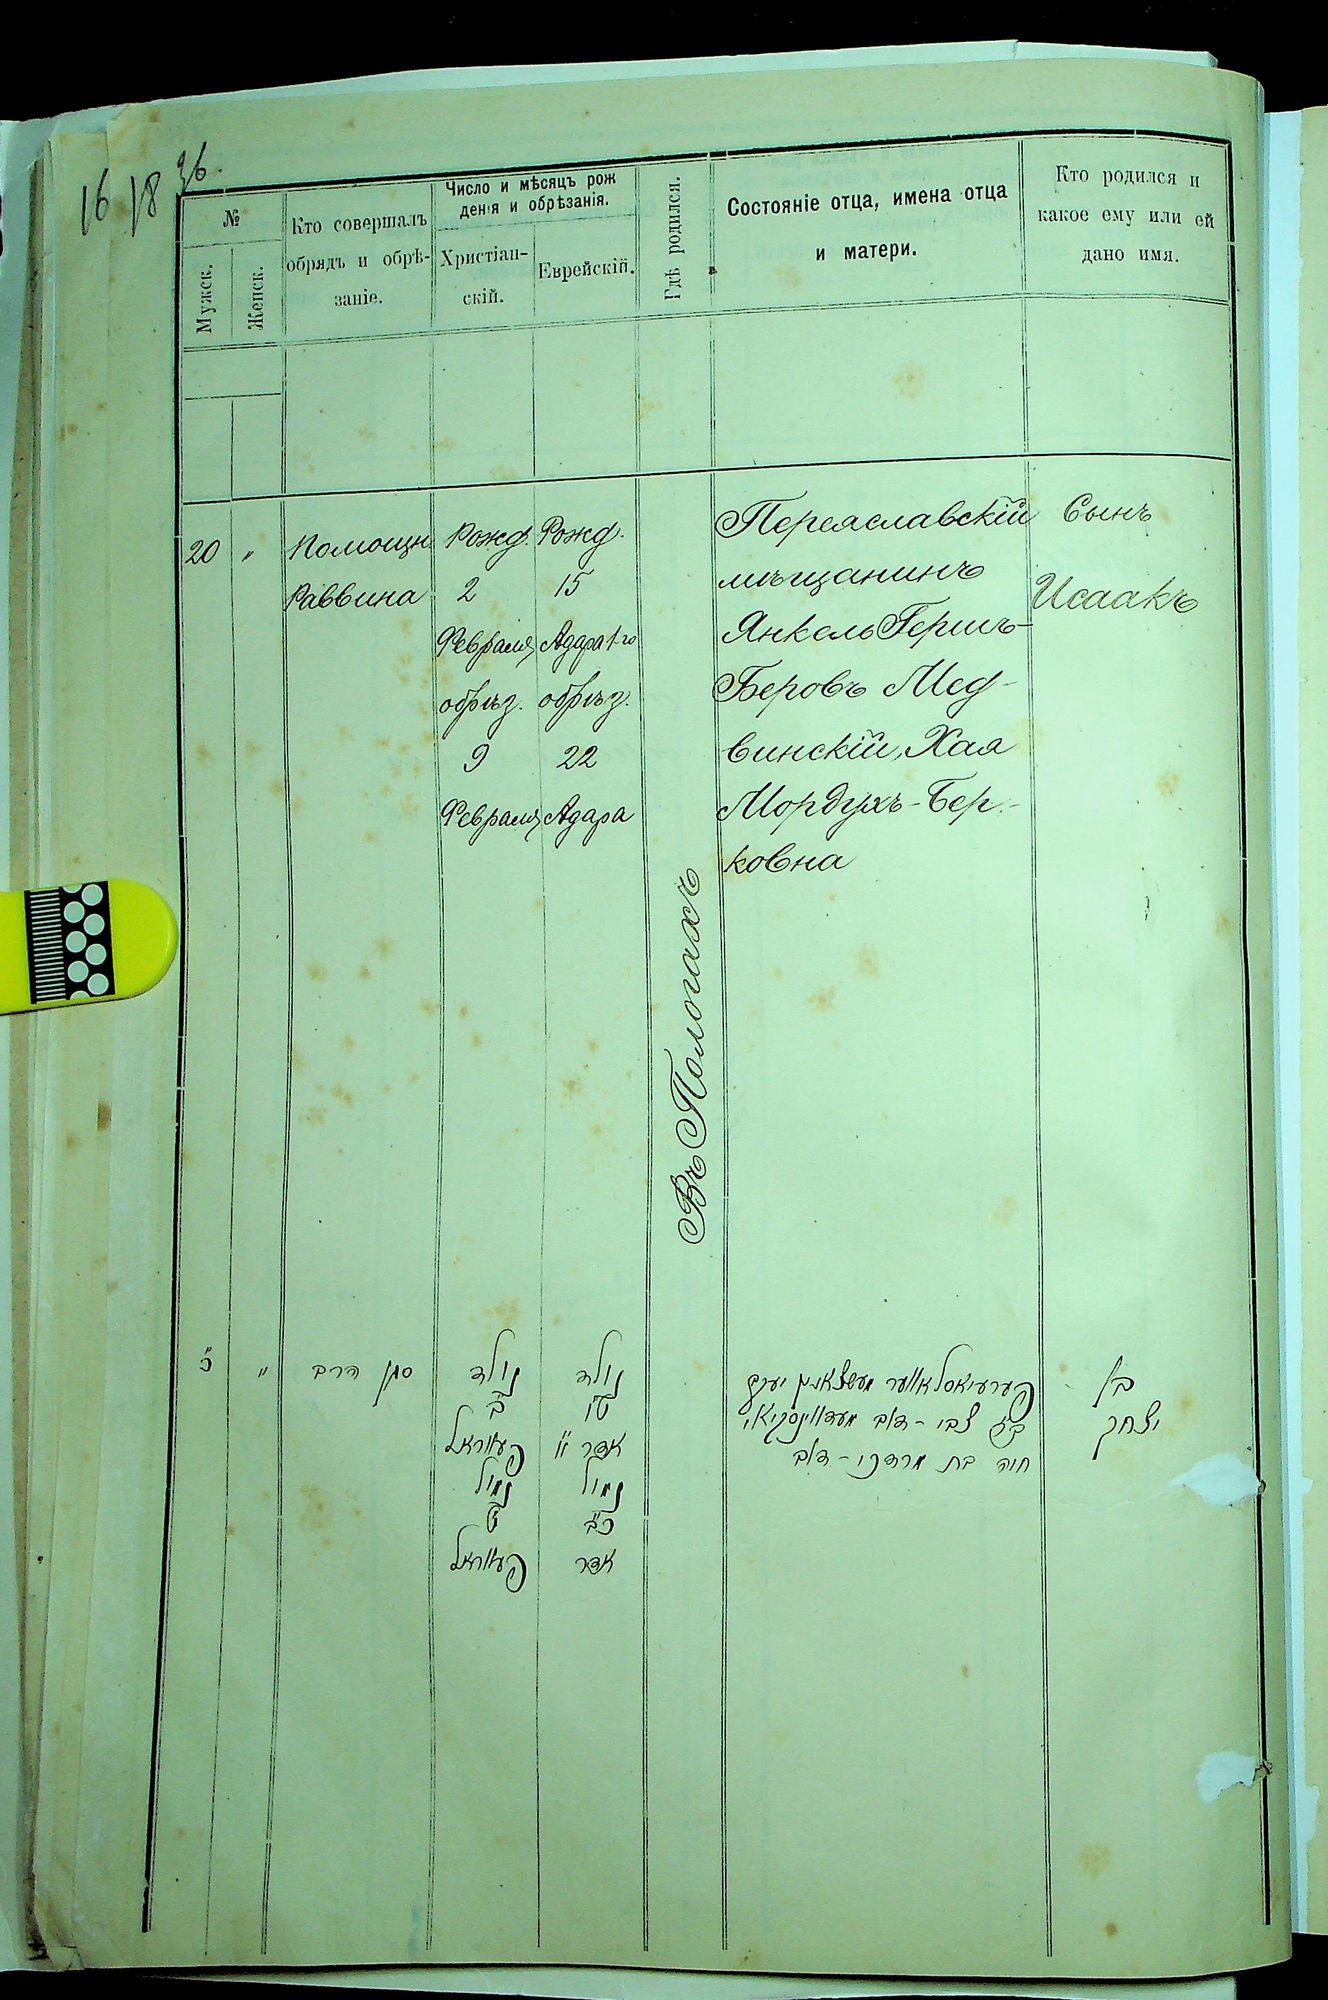 16 18 36.
№
Мужск.
Женск.
Кто совершалъ
обрядъ и обрѣ-
заніе.
Число и мѣсяцъ рож
денія и обрѣзанія.
Христіан-
скій.
Еврейскій.
Гдѣ родился.
Состояніе отца, имена отца
и матери.
Кто родился и
какое ему или ей
дано имя.
20 "
Помощн.
Раввина
Рожд.
2
Февраля
обрѣз.
9
Февраля
Рожд.
15
Адара 1-го
обрѣз.
22
Адара
Въ Пологахъ
Переяславскій
мѣщанинъ
Янкель Гершъ-
Беровъ Мед-
винскій, Хая
Мордухъ-Бер-
ковна
Сынъ
Исаакъ
כ "
סגן הרב
נולד
ב
פעווראל
נימול
ט
פעווראל
נולד
ט"ו
אדר
נימול
כ"ב
אדר
פערעיאסלאווער מעשצאנין יעקב
צבי - דוב מעדווינסקי
חיה בת מרדכי - דוב
בן
יצחק